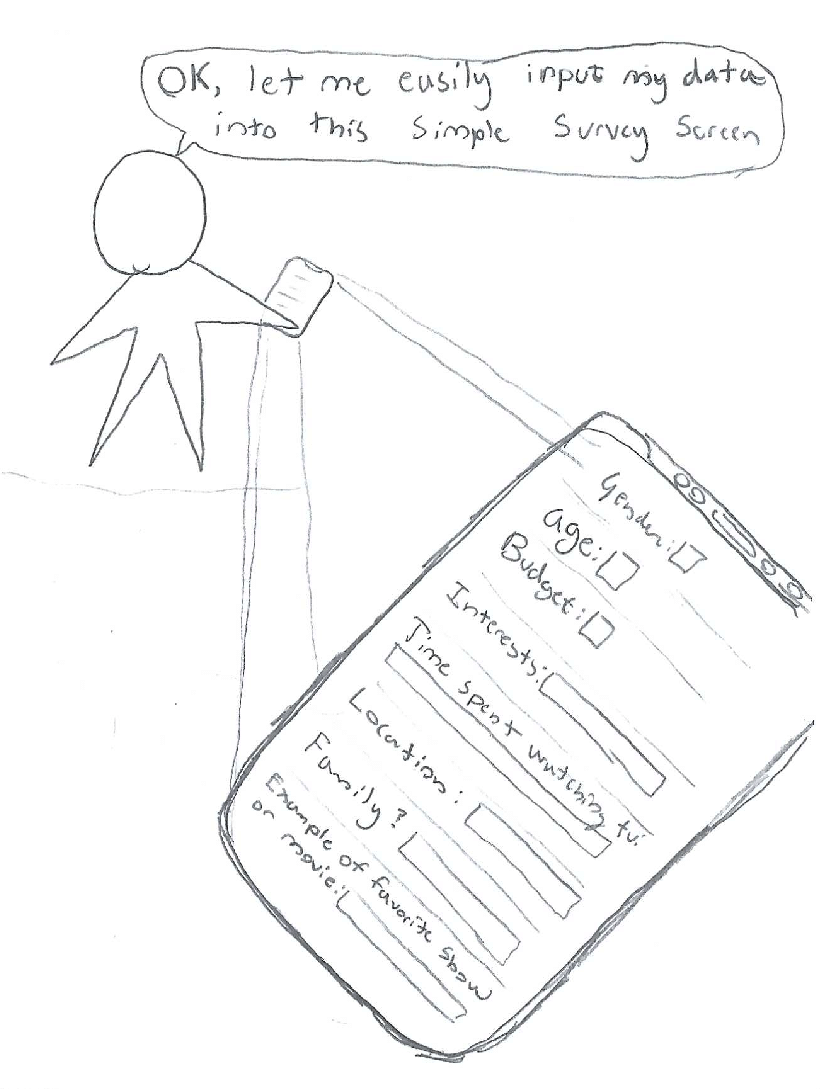 OK, let me easily input my data
into this simple survey screen
Gender:
age:
Budget:
Interests:
Time spent watching tv:
Location:
Family?
Example of favorite show
or movie: